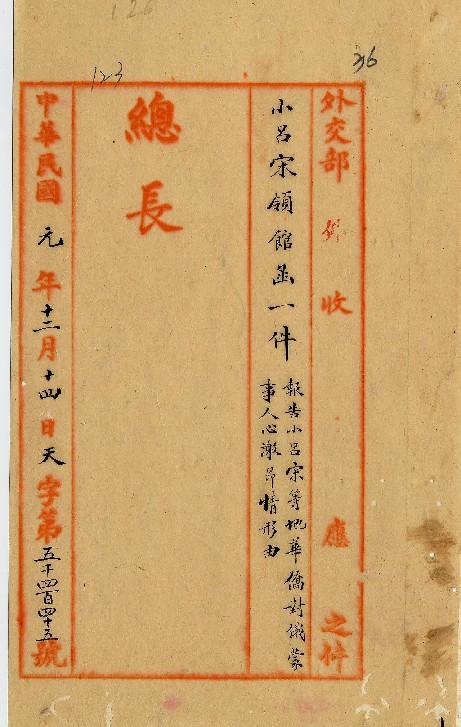 126
123
36
外交部 收 應 之件
小呂宋領館函一件
報告小呂宋等地華僑對俄蒙
事人心激昂情形由
總長
中華民國元年十二月十四日天字第五千四百四十五號